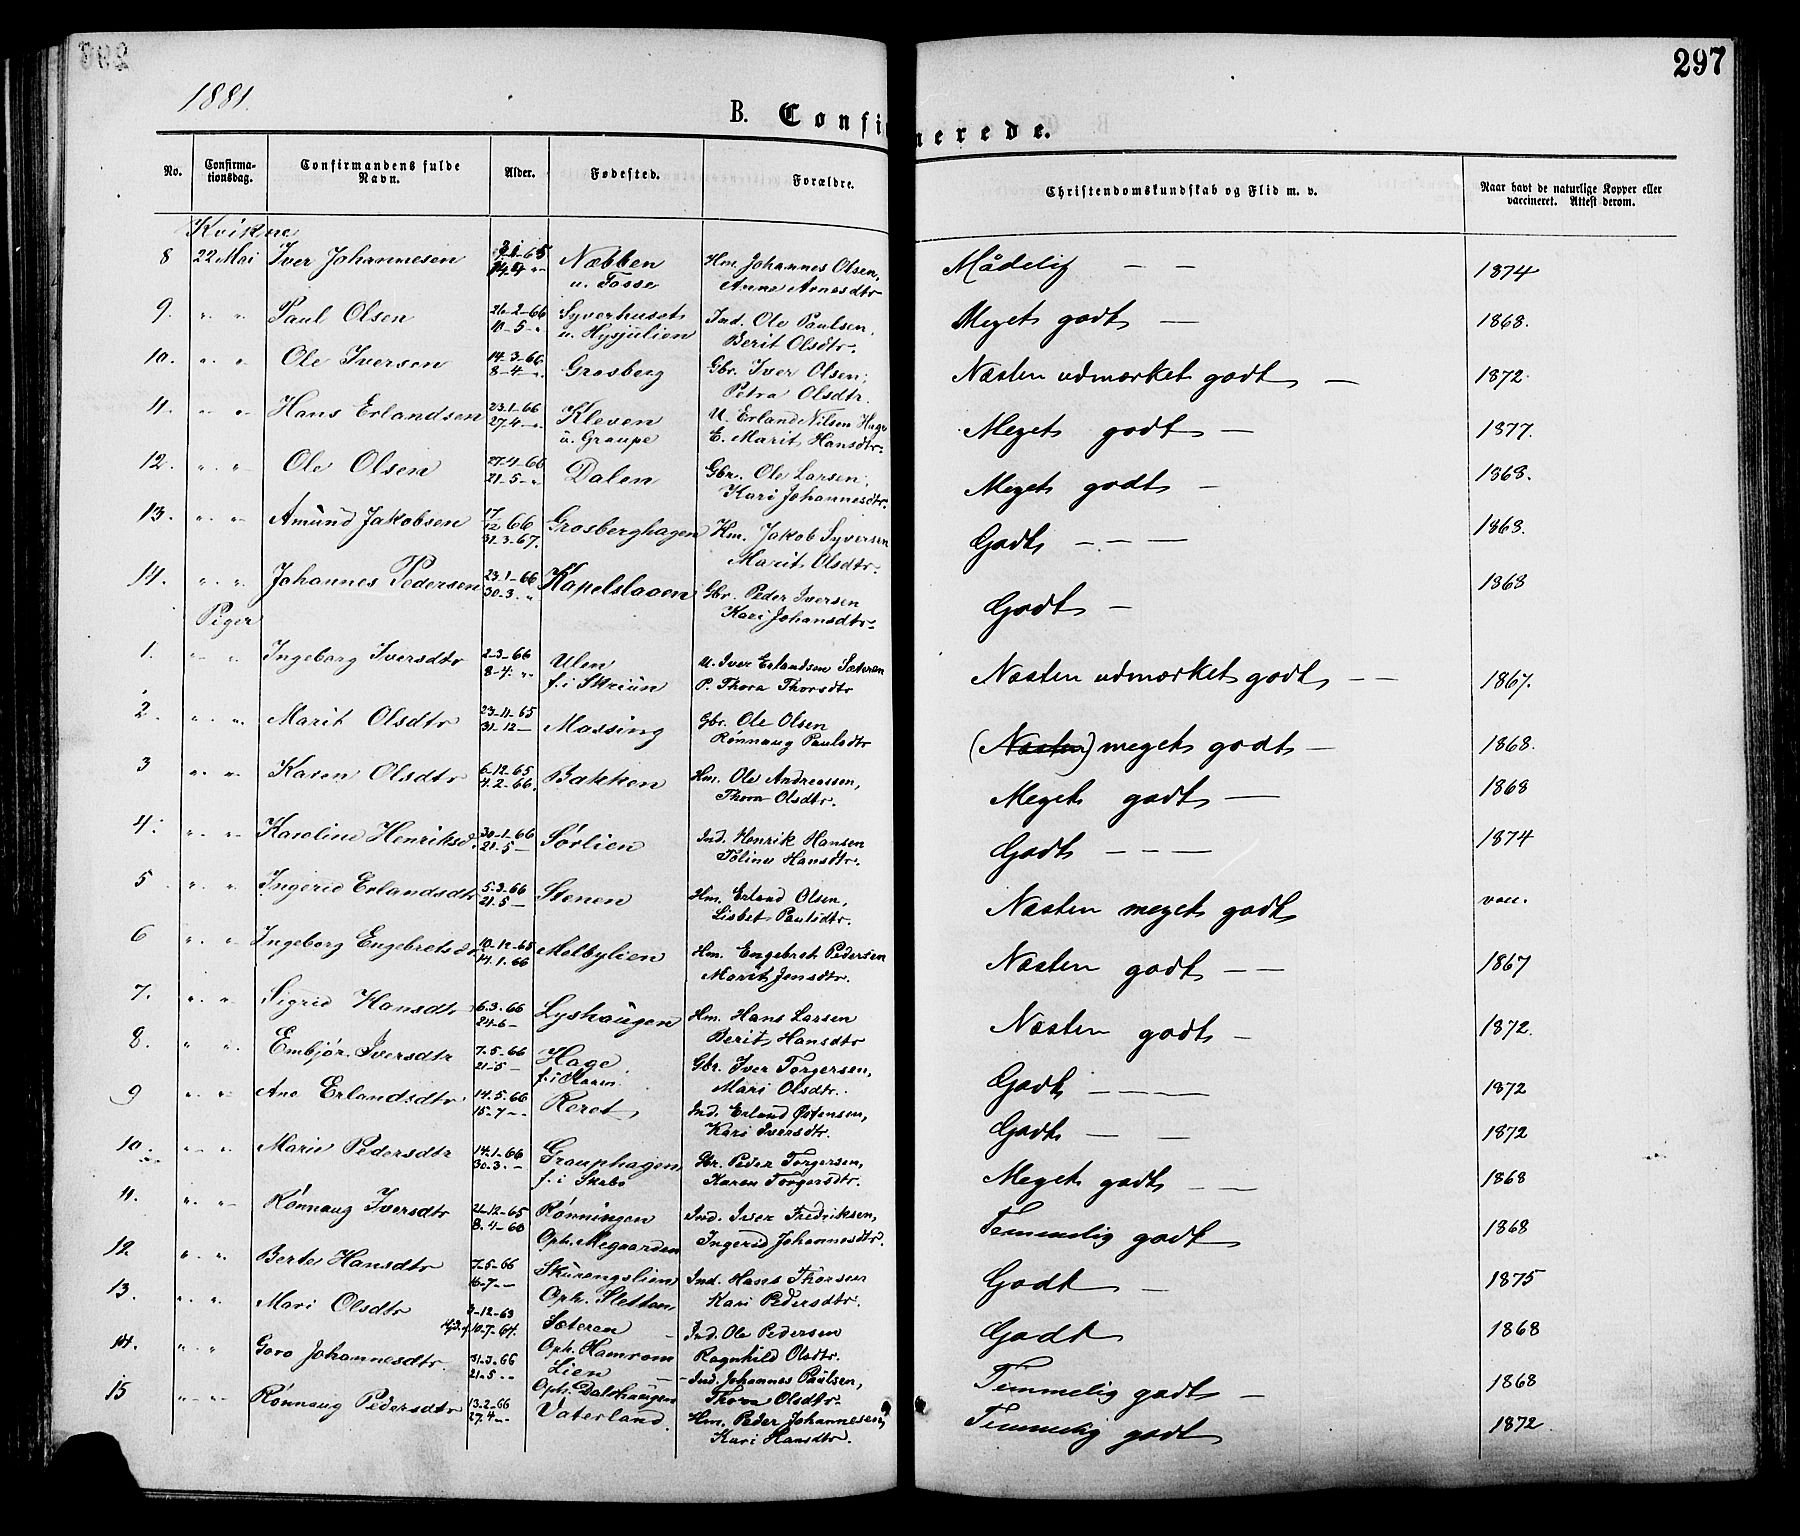 297
1881.
B. Confi nerede.
No. Confirma-tionsdag. Confirmandens fulde Navn. Alder. Fødested. Forældre. Christendomskundskab og Flid m. v. Naar havt de naturlige Kopper eller vaccineret. Attest derom.
Kvikne
8 22 Mai Iver Johannesen Næbben Hm. Johannes Olsen, Mådelig — — 1874
u. Fosse Anne Arnesdtr
9. " " Paul Olsen 26-2-66 Syverhuset Ind. Ole Paulsen, Meget godt — 1868.
10-5-" u. Hysjulien Berit Olsdtr.
10. " " Ole Iversen 14-3-66 Grosberg Gbr. Iver Olsen, Næsten udmærket godt — 1872.
8-4-" Petra Olsdtr.
11. " " Hans Erlandsen 23-1-66 Kleven U. Erland Nilsen Hage Meget godt — 1877.
27-4-" u. Graupe E. Marit Hansdtr.
12. " " Ole Olsen 27-4-66 Dalen Gbr. Ole Larsen, Meget godt — 1868.
21-5-" Kari Johannesdtr.
13. " " Amund Jakobsen 17/12 66 Grosberghagen Hm. Jakob Syversen Godt — — — 1868.
31-3-67. Marit Olsdtr.
14. " " Johannes Pedersen 23-1-66 Kapelslaaen Gbr. Peder Iversen Godt — 1868
30-3-" Kari Johansdtr.
Piger
1. " " Ingeborg Iversdtr 2-3-66 Ulen U. Iver Erlandsen Sæteren Næsten udmærket godt — — 1867.
8-4-" f. i Skriun P. Thora Thorsdtr
2. " " Marit Olsdtr 23-11-65 Massing Gbr. Ole Olsen (Næsten) meget godt — 1868.
31-12- Rønnaug Paulsdtr
3 " " Karen Olsdtr 6-12-65 Bakken Hm. Ole Andreassen, Meget godt — 1868
4-2-66. Thora Olsdtr.
4. " " Karoline Henriksd. 30-1-66 Sørlien Ind. Henrik Hansen Godt — — — 1874
21-5- Toline Hansdtr.
5 " " Ingerid Erlandsdtr 5-3-66 Stenen Hm. Erland Olsen, Næsten meget godt vac.
21-5- Lisbet Paulsdtr.
6 " " Ingeborg Engebretsd. 10-12-65 Melbylien Hm. Engebret Pedersen Næsten godt — — 1867
14-1-66 Marit Jensdtr.
7. " " Sigrid Hansdtr 6-3-66 Lyshaugen Hm. Hans Larsen Næsten godt — 1872.
24-6- Berit Hansdtr
8. " " Embjør Iversdtr 7-5-66 Hage Gbr. Iver Torgersen, Godt — — — 1872
21-5- Mari Olsdtr.
9 " " Ane Erlandsdtr 14-5-66 Reret Ind. Erland Østensen, Godt — — 1872
15-7- Kari Iversdtr.
10. " " Marie Pedersdtr 14-1-66 Grauphagen Gbr. Peder Torgersen, Meget godt — — 1868
30-3- f. i Skebo Karen Torgersdtr.
11. " " Rønnaug Iversdtr 21-12-65 Rønningen Ind. Iver Fredriksen, Temmelig godt 1868
8-4-66 Oph. Megaarden Ingerid Johannesdtr.
12 " " Berte Hansdtr 7-5-66 Skurengslien Ind. Hans Thorsen Godt — 1875
16-7- Oph. Sletten Kari Pedersdtr.
13. " " Mari Olsdtr 3-12-63 Sæteren Ind. Ole Pedersen Godt 1868
10-7-64. Oph. Hamrom Ragnhild Olsdtr.
14. " " Goro Johannesdtr. 31-3-66 Lien Ind. Johannes Paulsen, Temmelig godt — 1868
21-5- Oph. Dalshaugen Thora Olsdtr.
15 " " Rønnaug Pedersdtr 13-2-66 Vaterland Hm. Peder Johannesen, Temmelig godt 1872.
27-4- Kari Hansdtr.